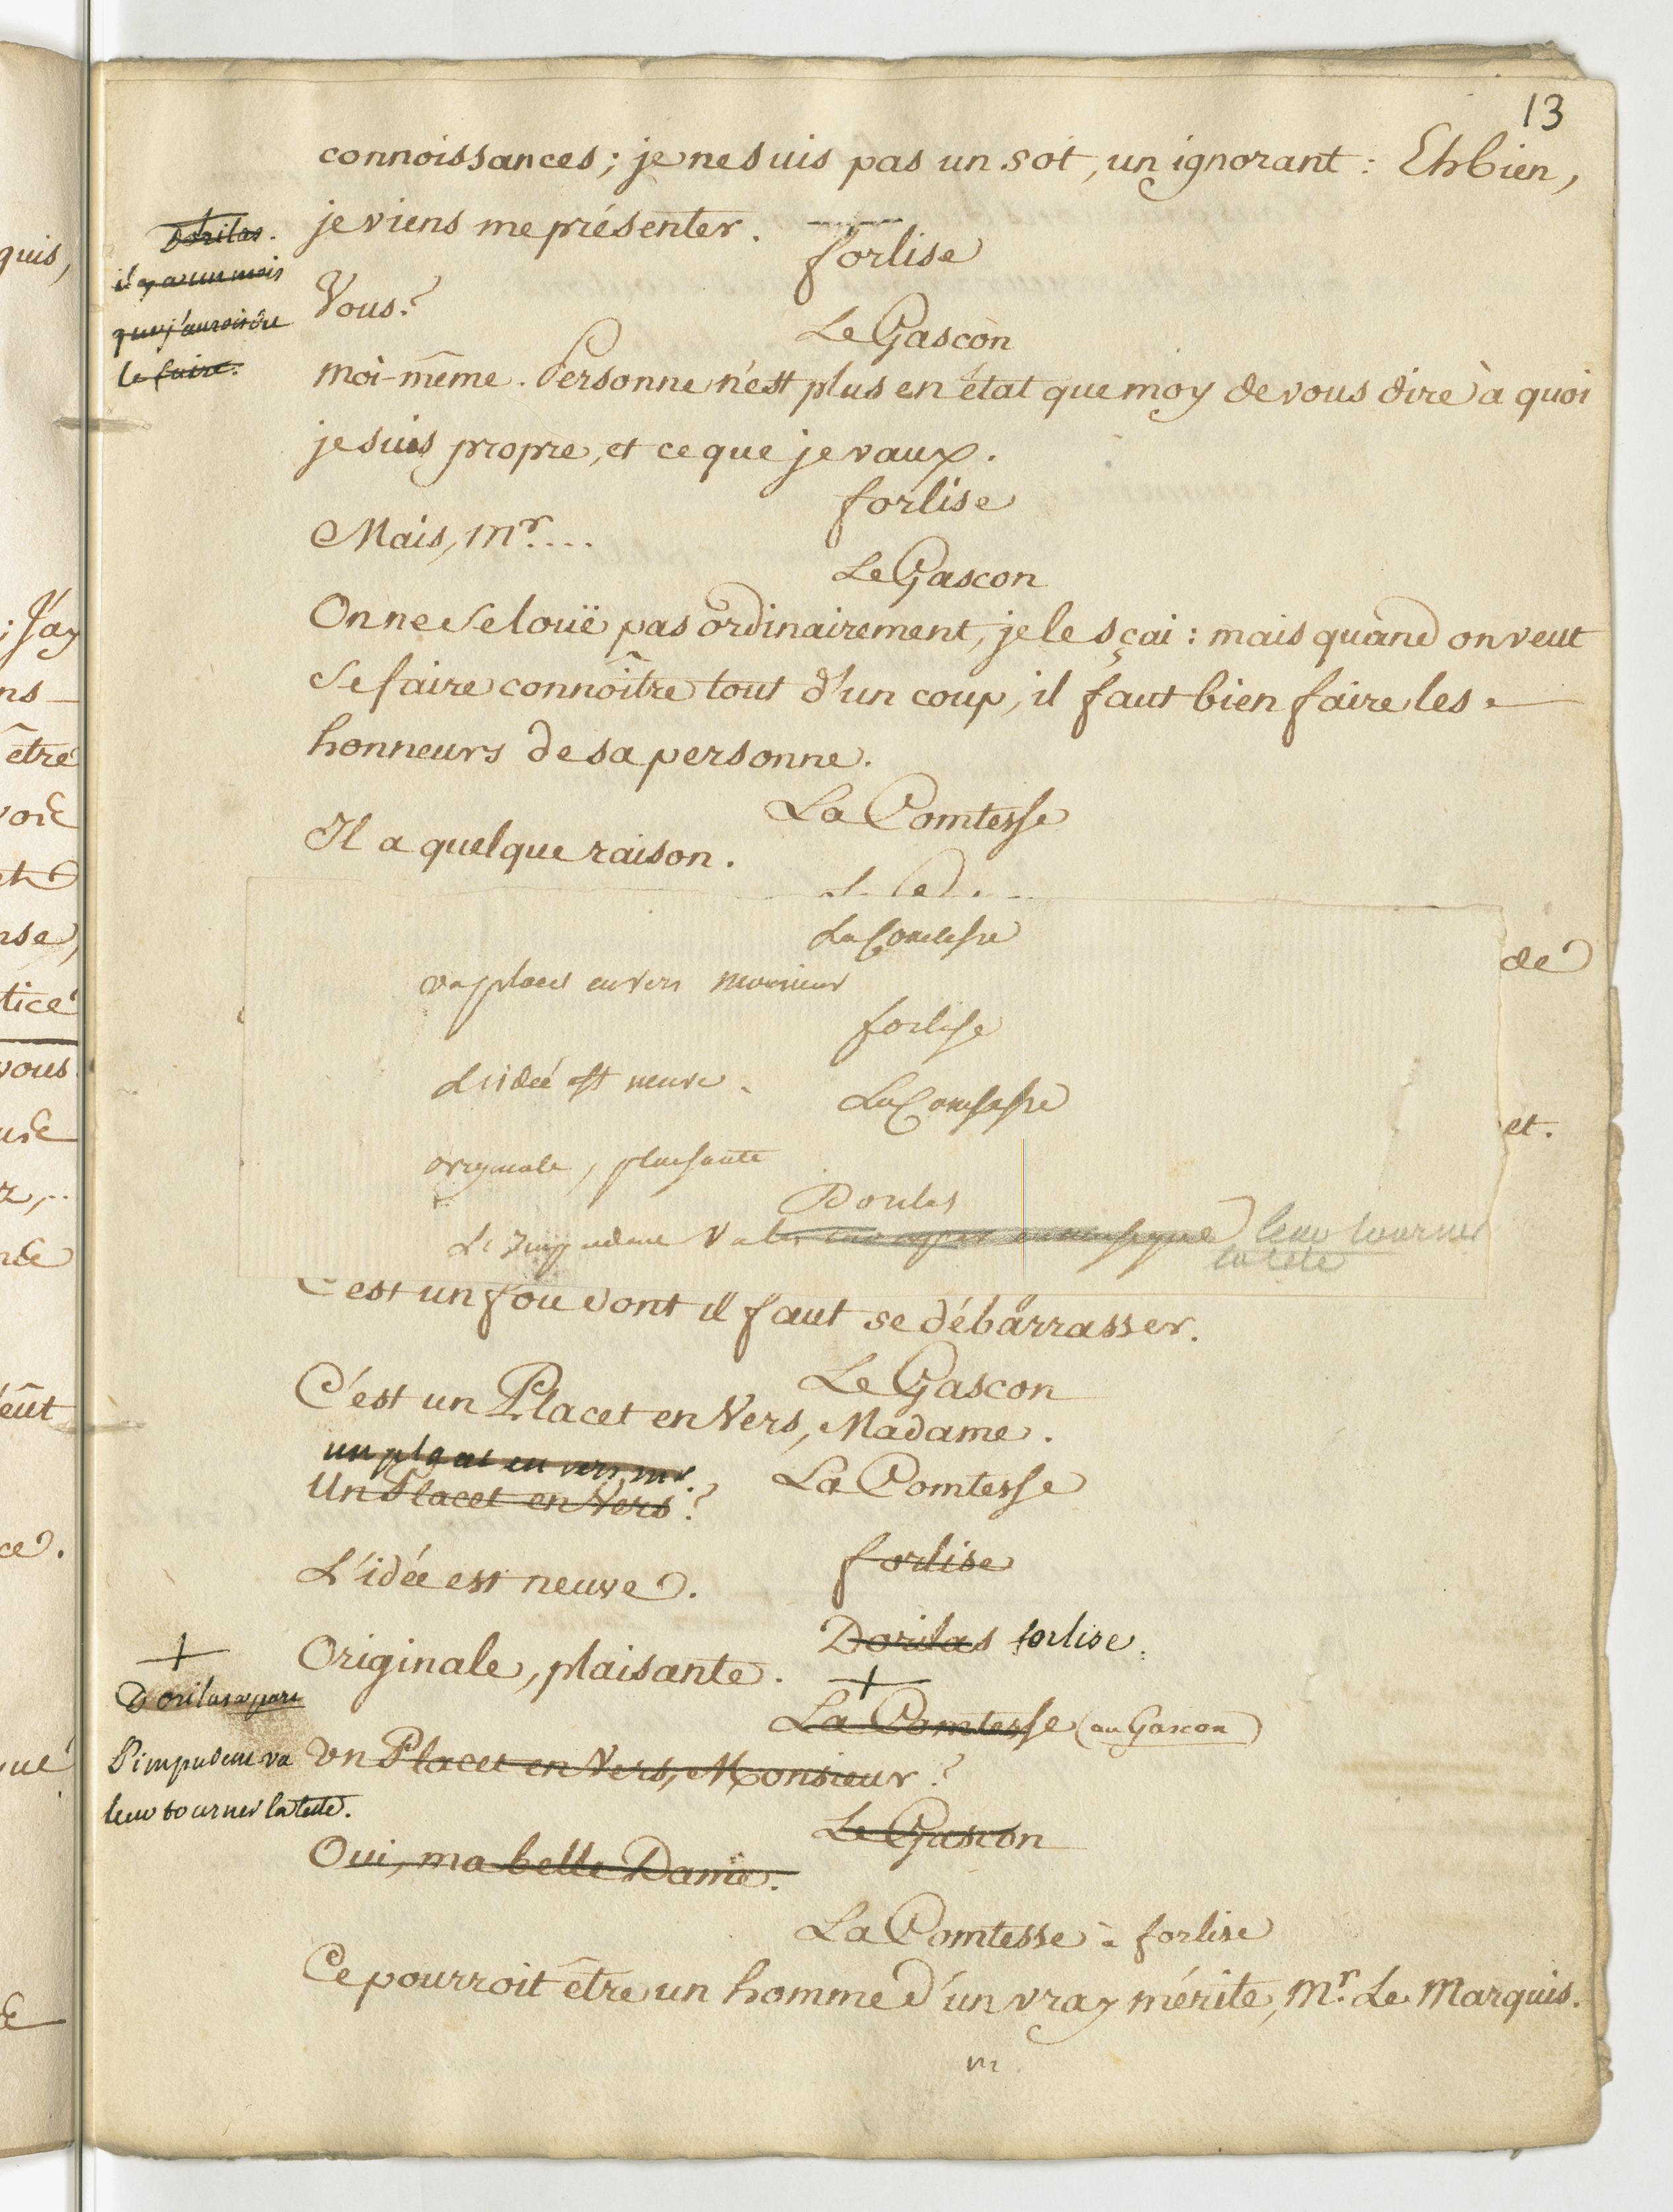 13
connoissances; je ne suis pas un sot, un ignorant: Eh bien,
je viens me présenter.
Dorilas.
il y a un mois
que j'aurois dû
le faire.
forlise
Vous?
Le Gascon
moi-même. Personne n'est plus en état que moy de vous dire à quoi
je suis propre, et ce que je vaux.
forlise
Mais, Mr....
Le Gascon
On ne se louë pas ordinairement, je le sçai: mais quand on veut
se faire connoître tout d'un coup, il faut bien faire les
honneurs de sa personne.
La Comtesse
Il a quelque raison.
La Comtesse
placet en vers monsieur
de
forlise
L'idée est neuve.
La Comtesse
et.
originale, plaisante
Dorilas
L'impudent va leur tourner
la tete
C'est un fou dont il faut se débarrasser.
Le Gascon
C'est un Placet en Vers, Madame.
un placet en vers, mr.
La Comtesse
Un Placet en Vers?
forlise
L'idée est neuve.
Dorilas forlise.
Originale, plaisante.
+
+
Dorilas a part
L'impudent va
leur tourner la teste.
La Comtesse (au Gascon)
Un Placet en Vers, Monsieur?
Le Gascon
Oui, ma belle Dame.
La Comtesse à forlise
Ce pourroit être un homme d'un vray mérite, Mr. Le Marquis.
quis,
; J'ay
ns
être
nse,
tice
vous
eût
ce.